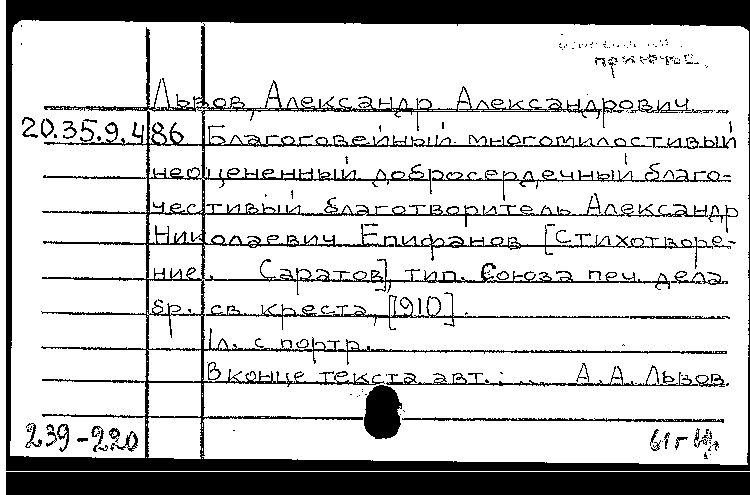 приютск.
Львов, Александр Александрович
20.35.9.486 Благоговейный многомилостивый
неоцененный добросердечный благо-
честивый благотворитель Александр
Николаевич Епифанов [Стихотворе-
ние. Саратов], тип. Союза печ. дела
бр. св. креста, [910].
1л. с портр.
В конце текста авт.: ... А.А. Львов.
239-220 61г